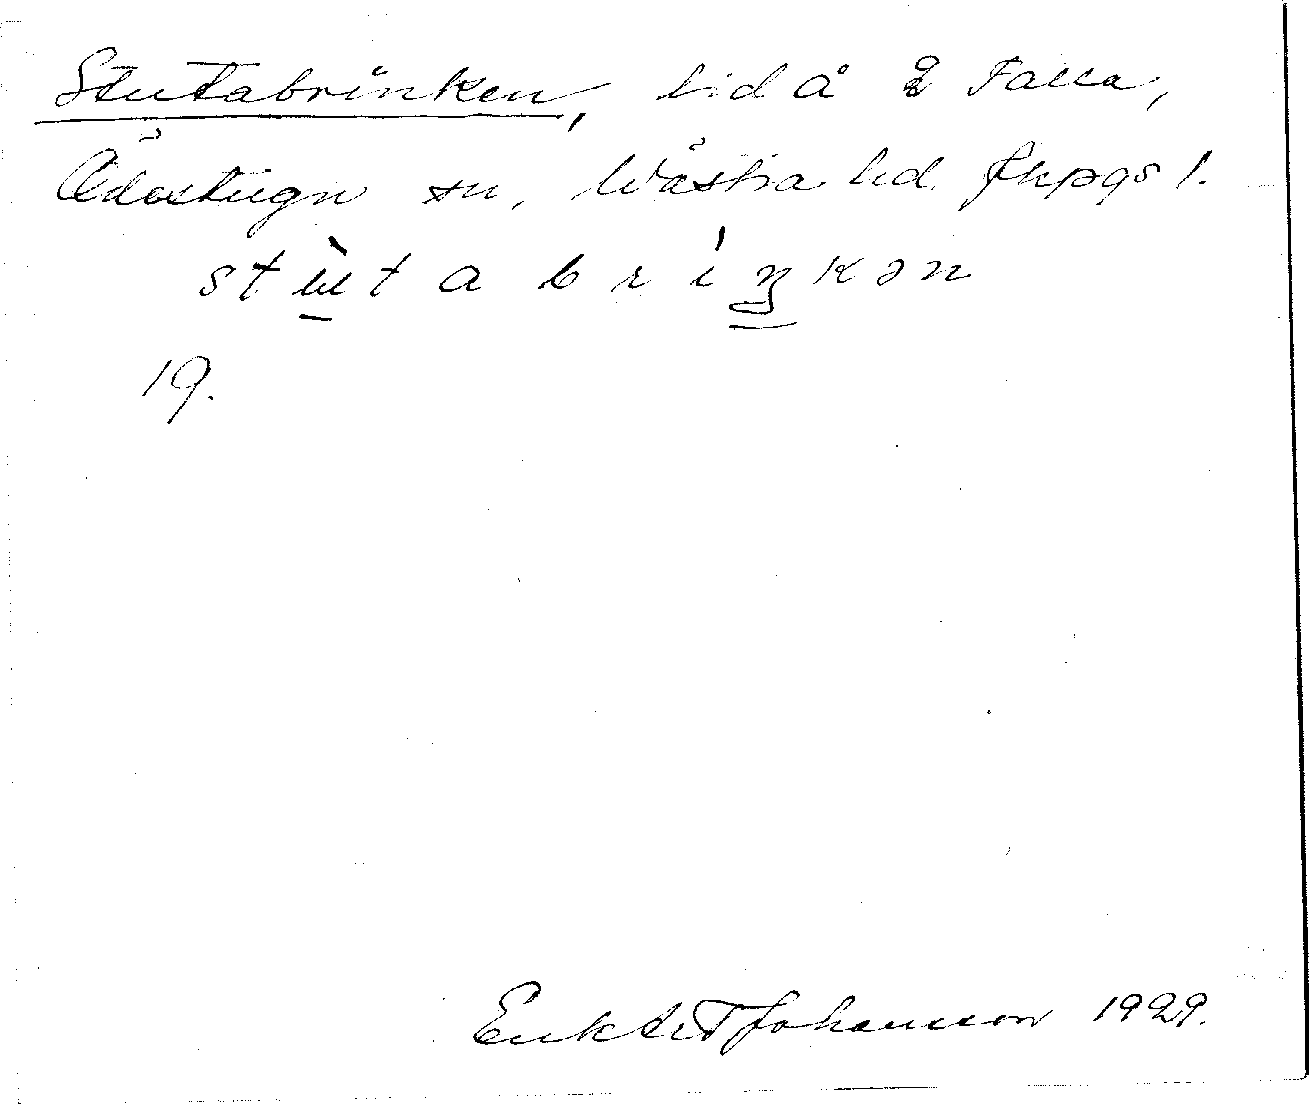 Stutabrinken, lid å 2 Falla,
Ödestugu sn, Wästra hd. Jkpgs l.
stùtabrín̠kən
19.
Johansson 1929.